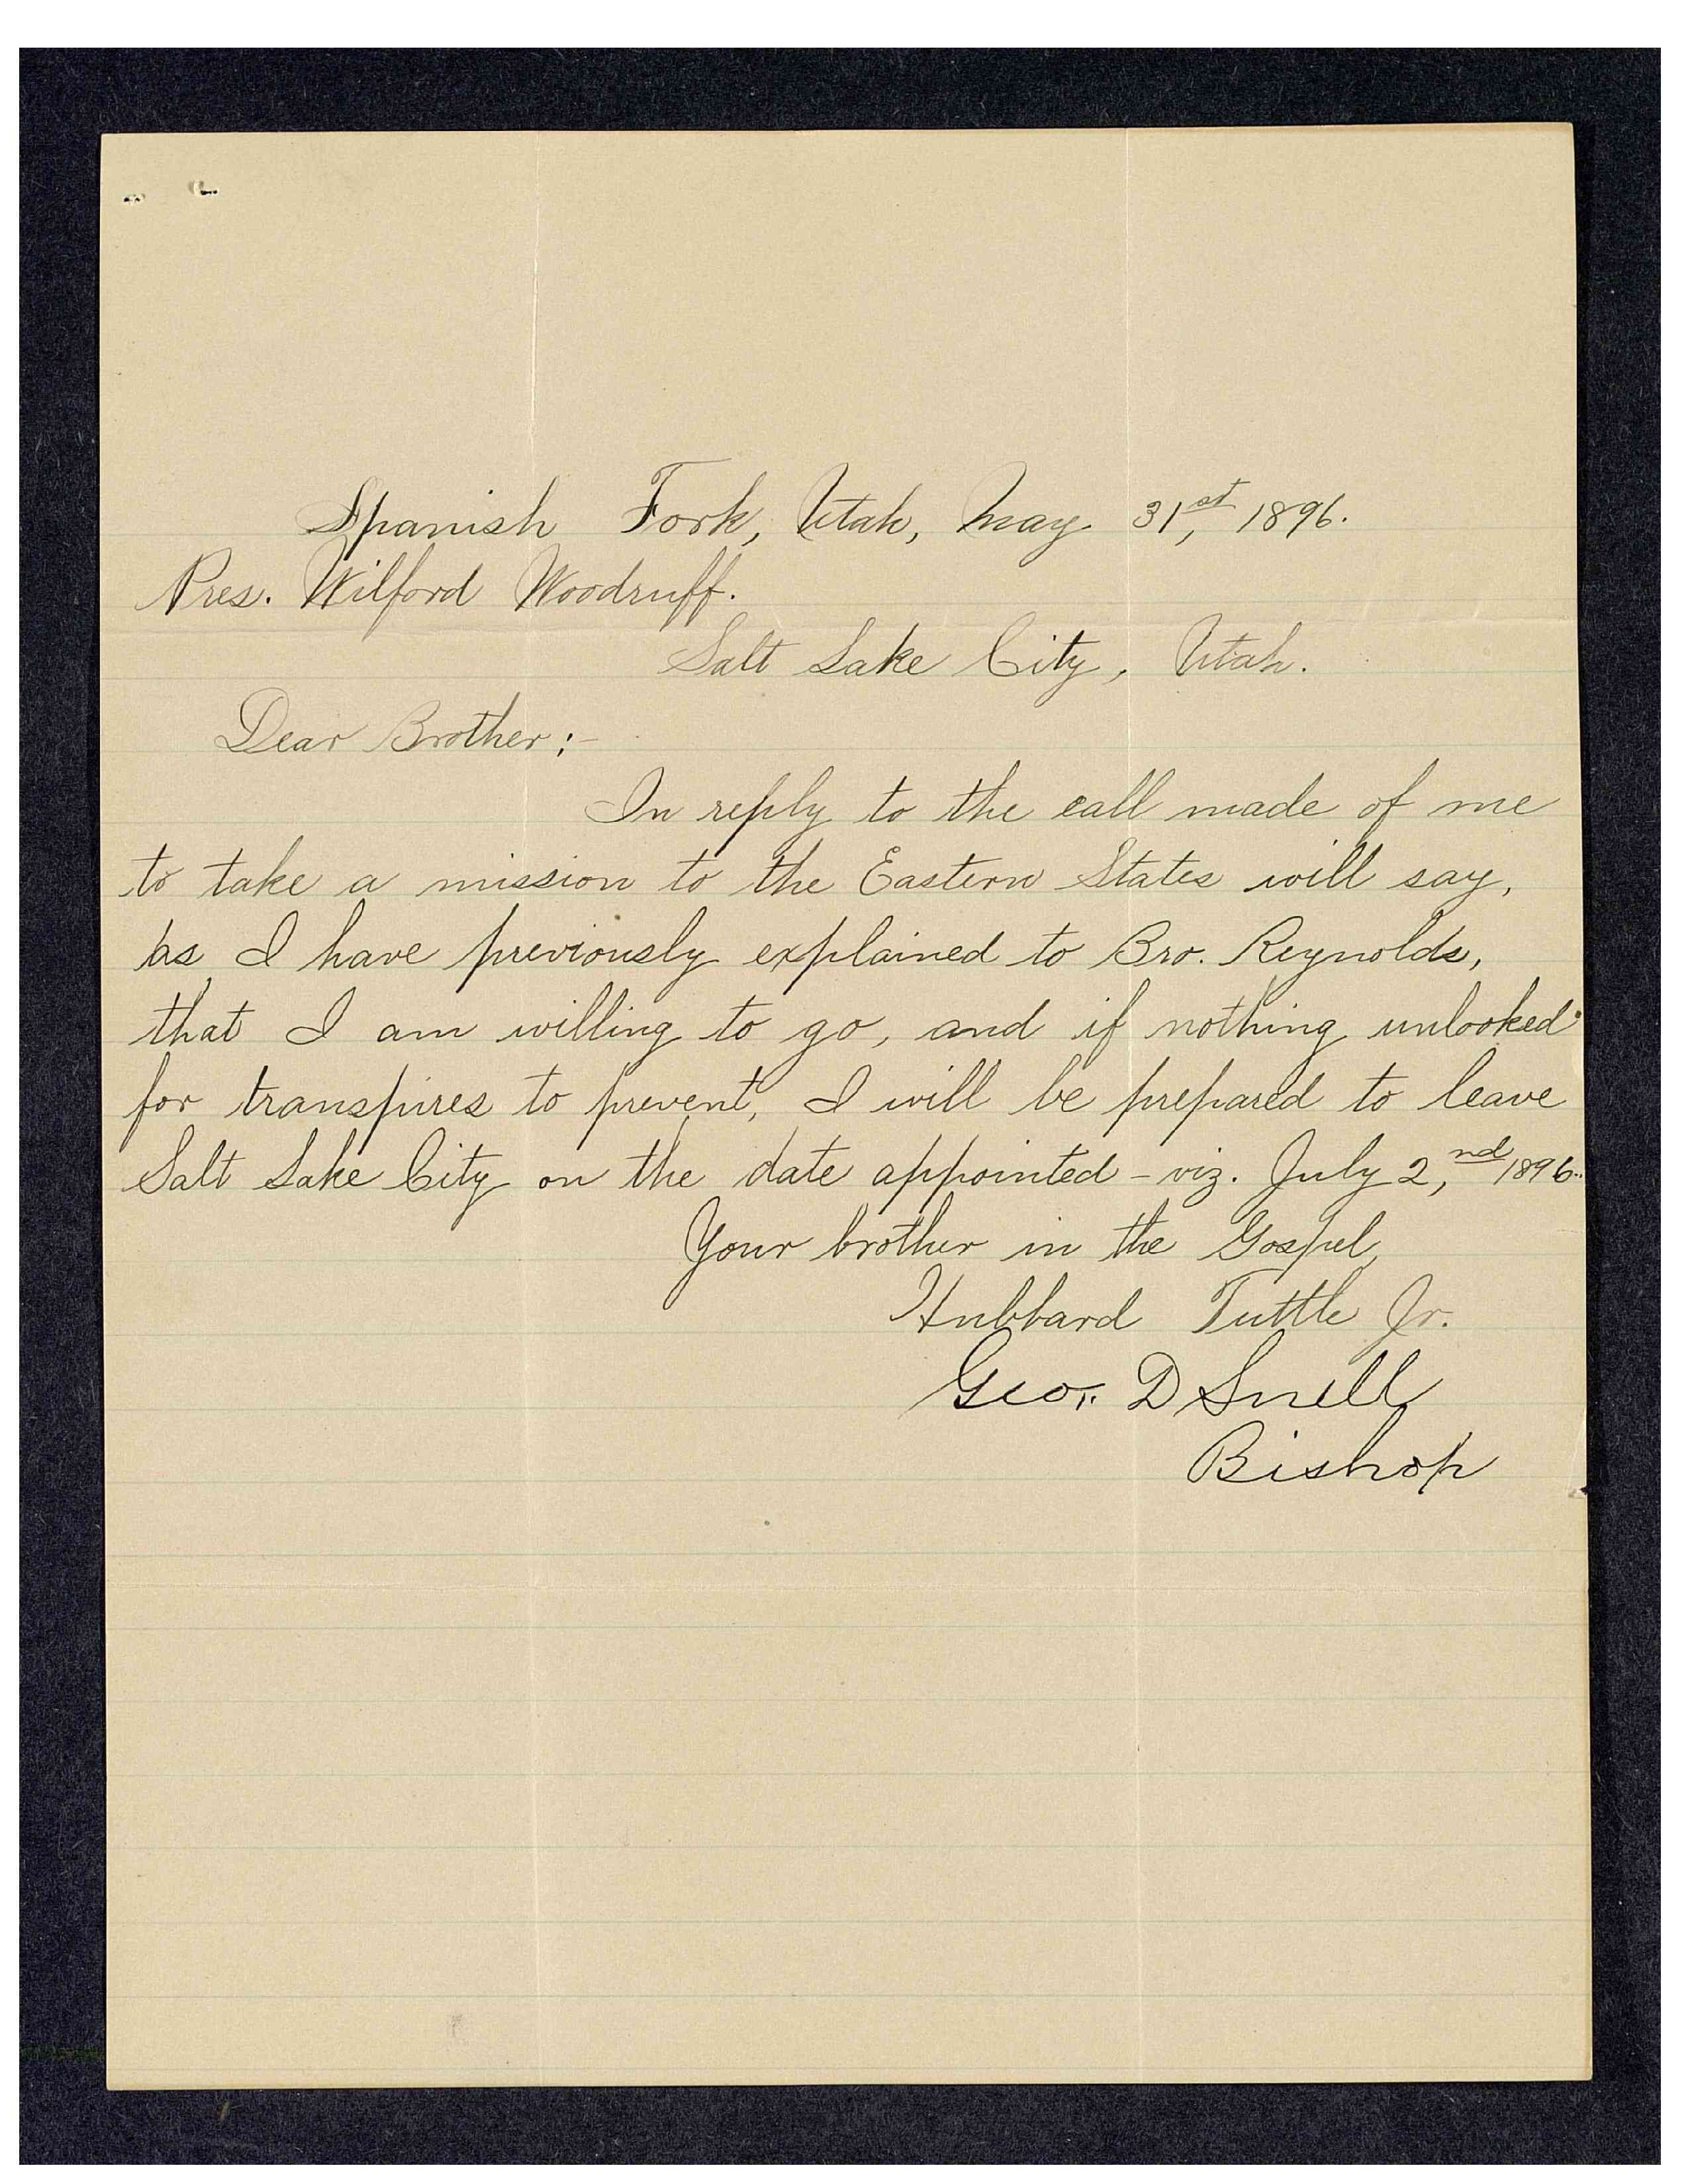 Spanish Fork, Utah, May 31st, 1896.
Pres. Wilford Woodruff.
Salt Lake City, Utah.
Dear Brother;-
In reply to the call made of me
to take a mission to the Eastern States will say,
as I have previously explained to Bro. Reynolds,
that I am willing to go, and if nothing unlooked
for transpires to prevent, I will be prepared to leave
Salt Lake City on the date appointed - viz. July 2,nd 1896.
Your brother in the Gospel,
Hubbard Tuttle Jr.
Geo. D Snell
Bishop